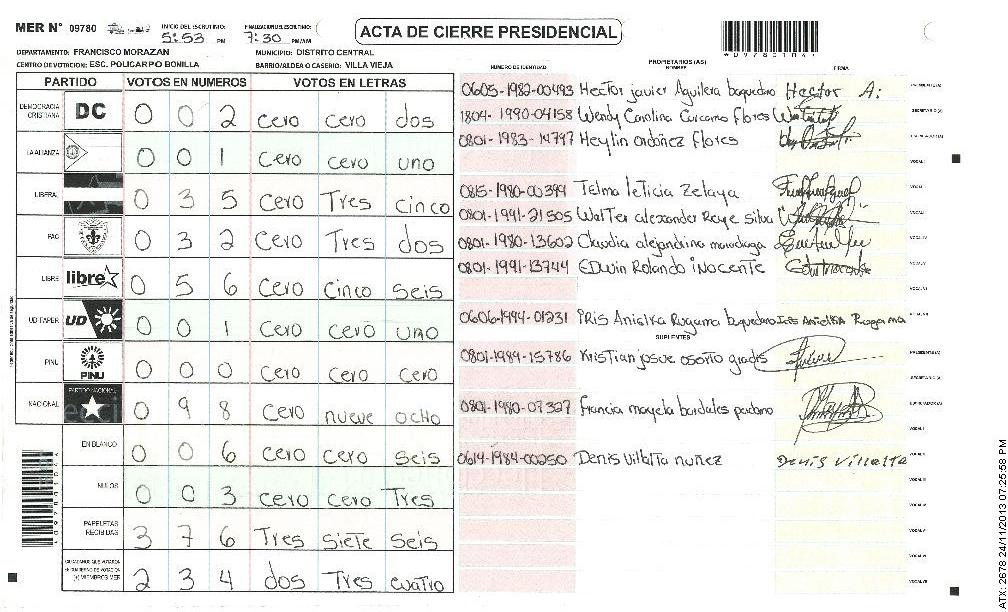 MER N° 09780 INICIO DEL ESCRUTINIO: 5:53 PM FINALIZACION DEL ESCRUTINIO: 7:30 PM/AM
ACTA DE CIERRE PRESIDENCIAL
DEPARTAMENTO: FRANCISCO MORAZAN MUNICIPIO: DISTRITO CENTRAL
CENTRO DE VOTACION: ESC. POLICARPO BONILLA BARRIO/ALDEA O CASERIO: VILLA VIEJA
PARTIDO VOTOS EN NUMEROS VOTOS EN LETRAS
DEMOCRACIA CRISTIANA DC 0 0 2 cero cero dos
LA ALIANZA 0 0 1 cero cero uno
LIBERAL 0 3 5 cero Tres cinco
PAC 0 3 2 Cero Tres dos
LIBRE libre 0 5 6 Cero Cinco Seis
UD/FAPER UD 0 0 1 Cero cero uno
PINU PINU 0 0 0 cero cero cero
NACIONAL PARTIDO NACIONAL 0 9 8 Cero nueve ocho
EN BLANCO 0 0 6 cero cero seis
NULOS 0 0 3 cero cero Tres
PAPELETAS RECIBIDAS 3 7 6 Tres siete seis
CIUDADANOS QUE VOTARON (+) MIEMBROS MER 2 3 4 dos Tres cuatro
NUMERO DE IDENTIDAD PROPIETARIOS (AS) NOMBRE FIRMA
0605-1982-00493 Hector javier Aguilera baquedano Hector A: PRESIDENTE(A)
1804-1990-04158 Wendy Carolina Carcamo Flores SECRETARIO(A)
0801-1983-14797 Heylin ordoñez flores ESCRUTADOR(A)
VOCAL I
0815-1980-00399 Telma leticia Zelaya
0801-1991-21505 Walter alexander Reye silva
0801-1980-13602 Claudia alejandrina
0801-1991-13744 EDwin Rolando iNocente
0606-1994-01231 iRis Anielka Rugama baquedano Iris Anielka Rugama
SUPLENTES
0801-1994-15786 Kristian josue osorto PRESIDENTE(A)
SECRETARIO(A)
0801-1980-07327 francia mayela bardales ESCRUTADOR(A)
0614-1984-00250 Denis Villatta nuñez Denis Villatta
ATX: 2678 24/11/2013 07:25:58 PM